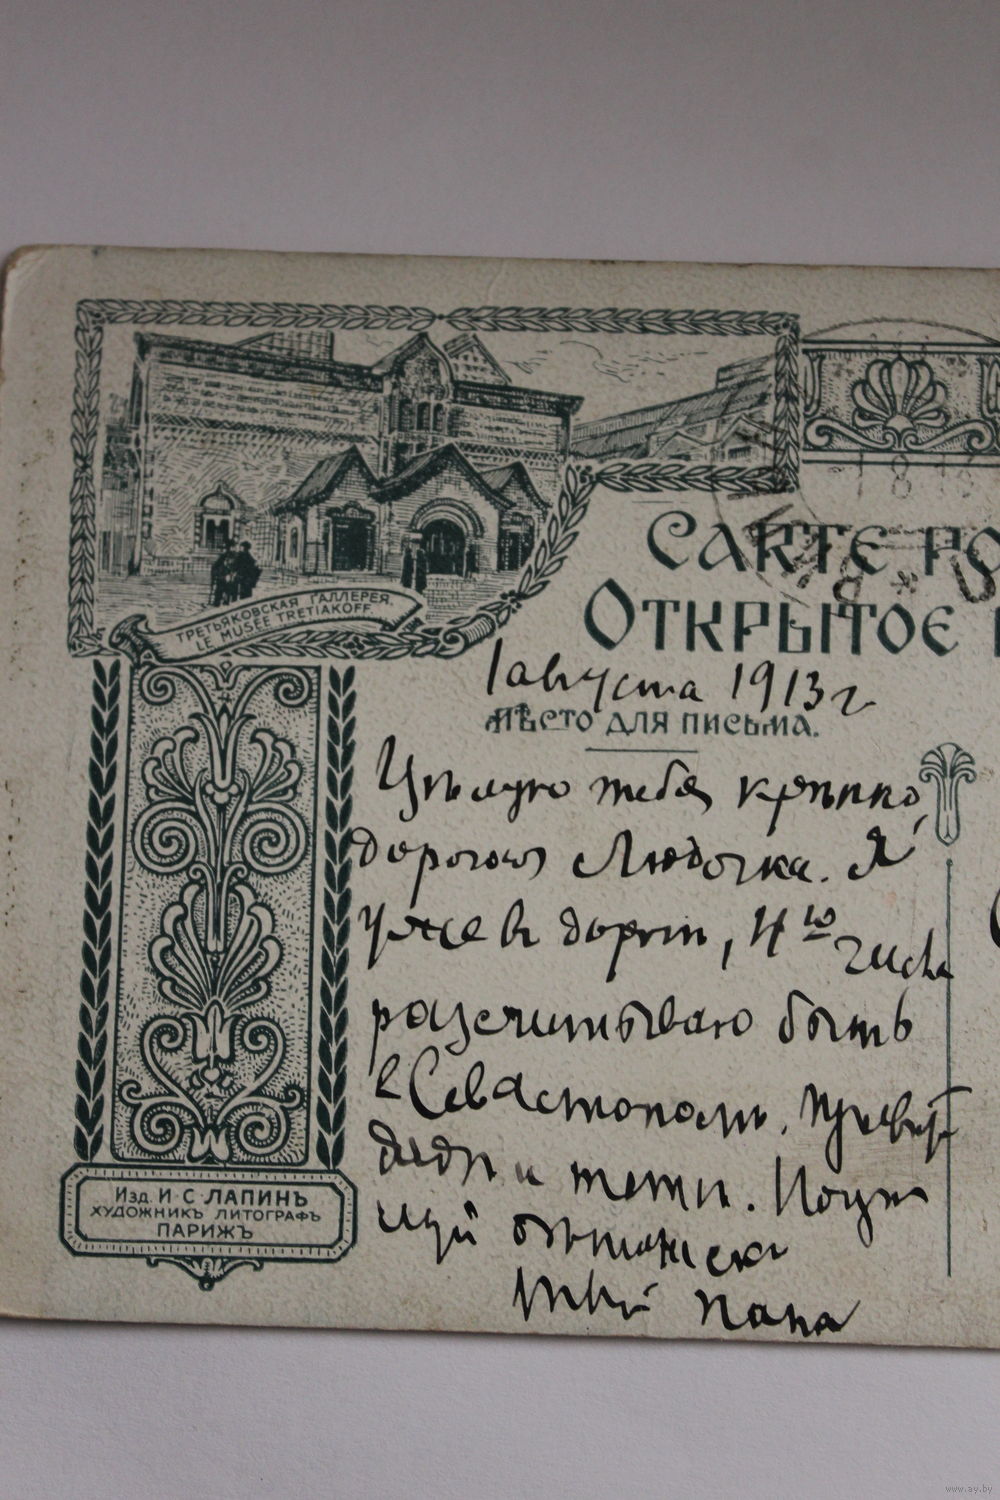 ТРЕТЬЯКОВСКАЯ ГАЛЛЕРЕЯ.
LE MUSÉE TRETIAKOFF.
1 8 13
CARTE PO
ОТКРЫТОЕ
1 августа 1913 г
МѢСТО ДЛЯ ПИСЬМА.
Цѣлую тебя крѣпко,
дорогая Людочка. Я
уже в дороге, 4го числа
разсчитываю быть
в Севастополѣ. Привет
дядѣ и тетѣ. Поцѣ
луй
Твой папа
Изд. И. С. ЛАПИНЪ
ХУДОЖНИКЪ ЛИТОГРАФЪ
ПАРИЖЪ
www.ay.by